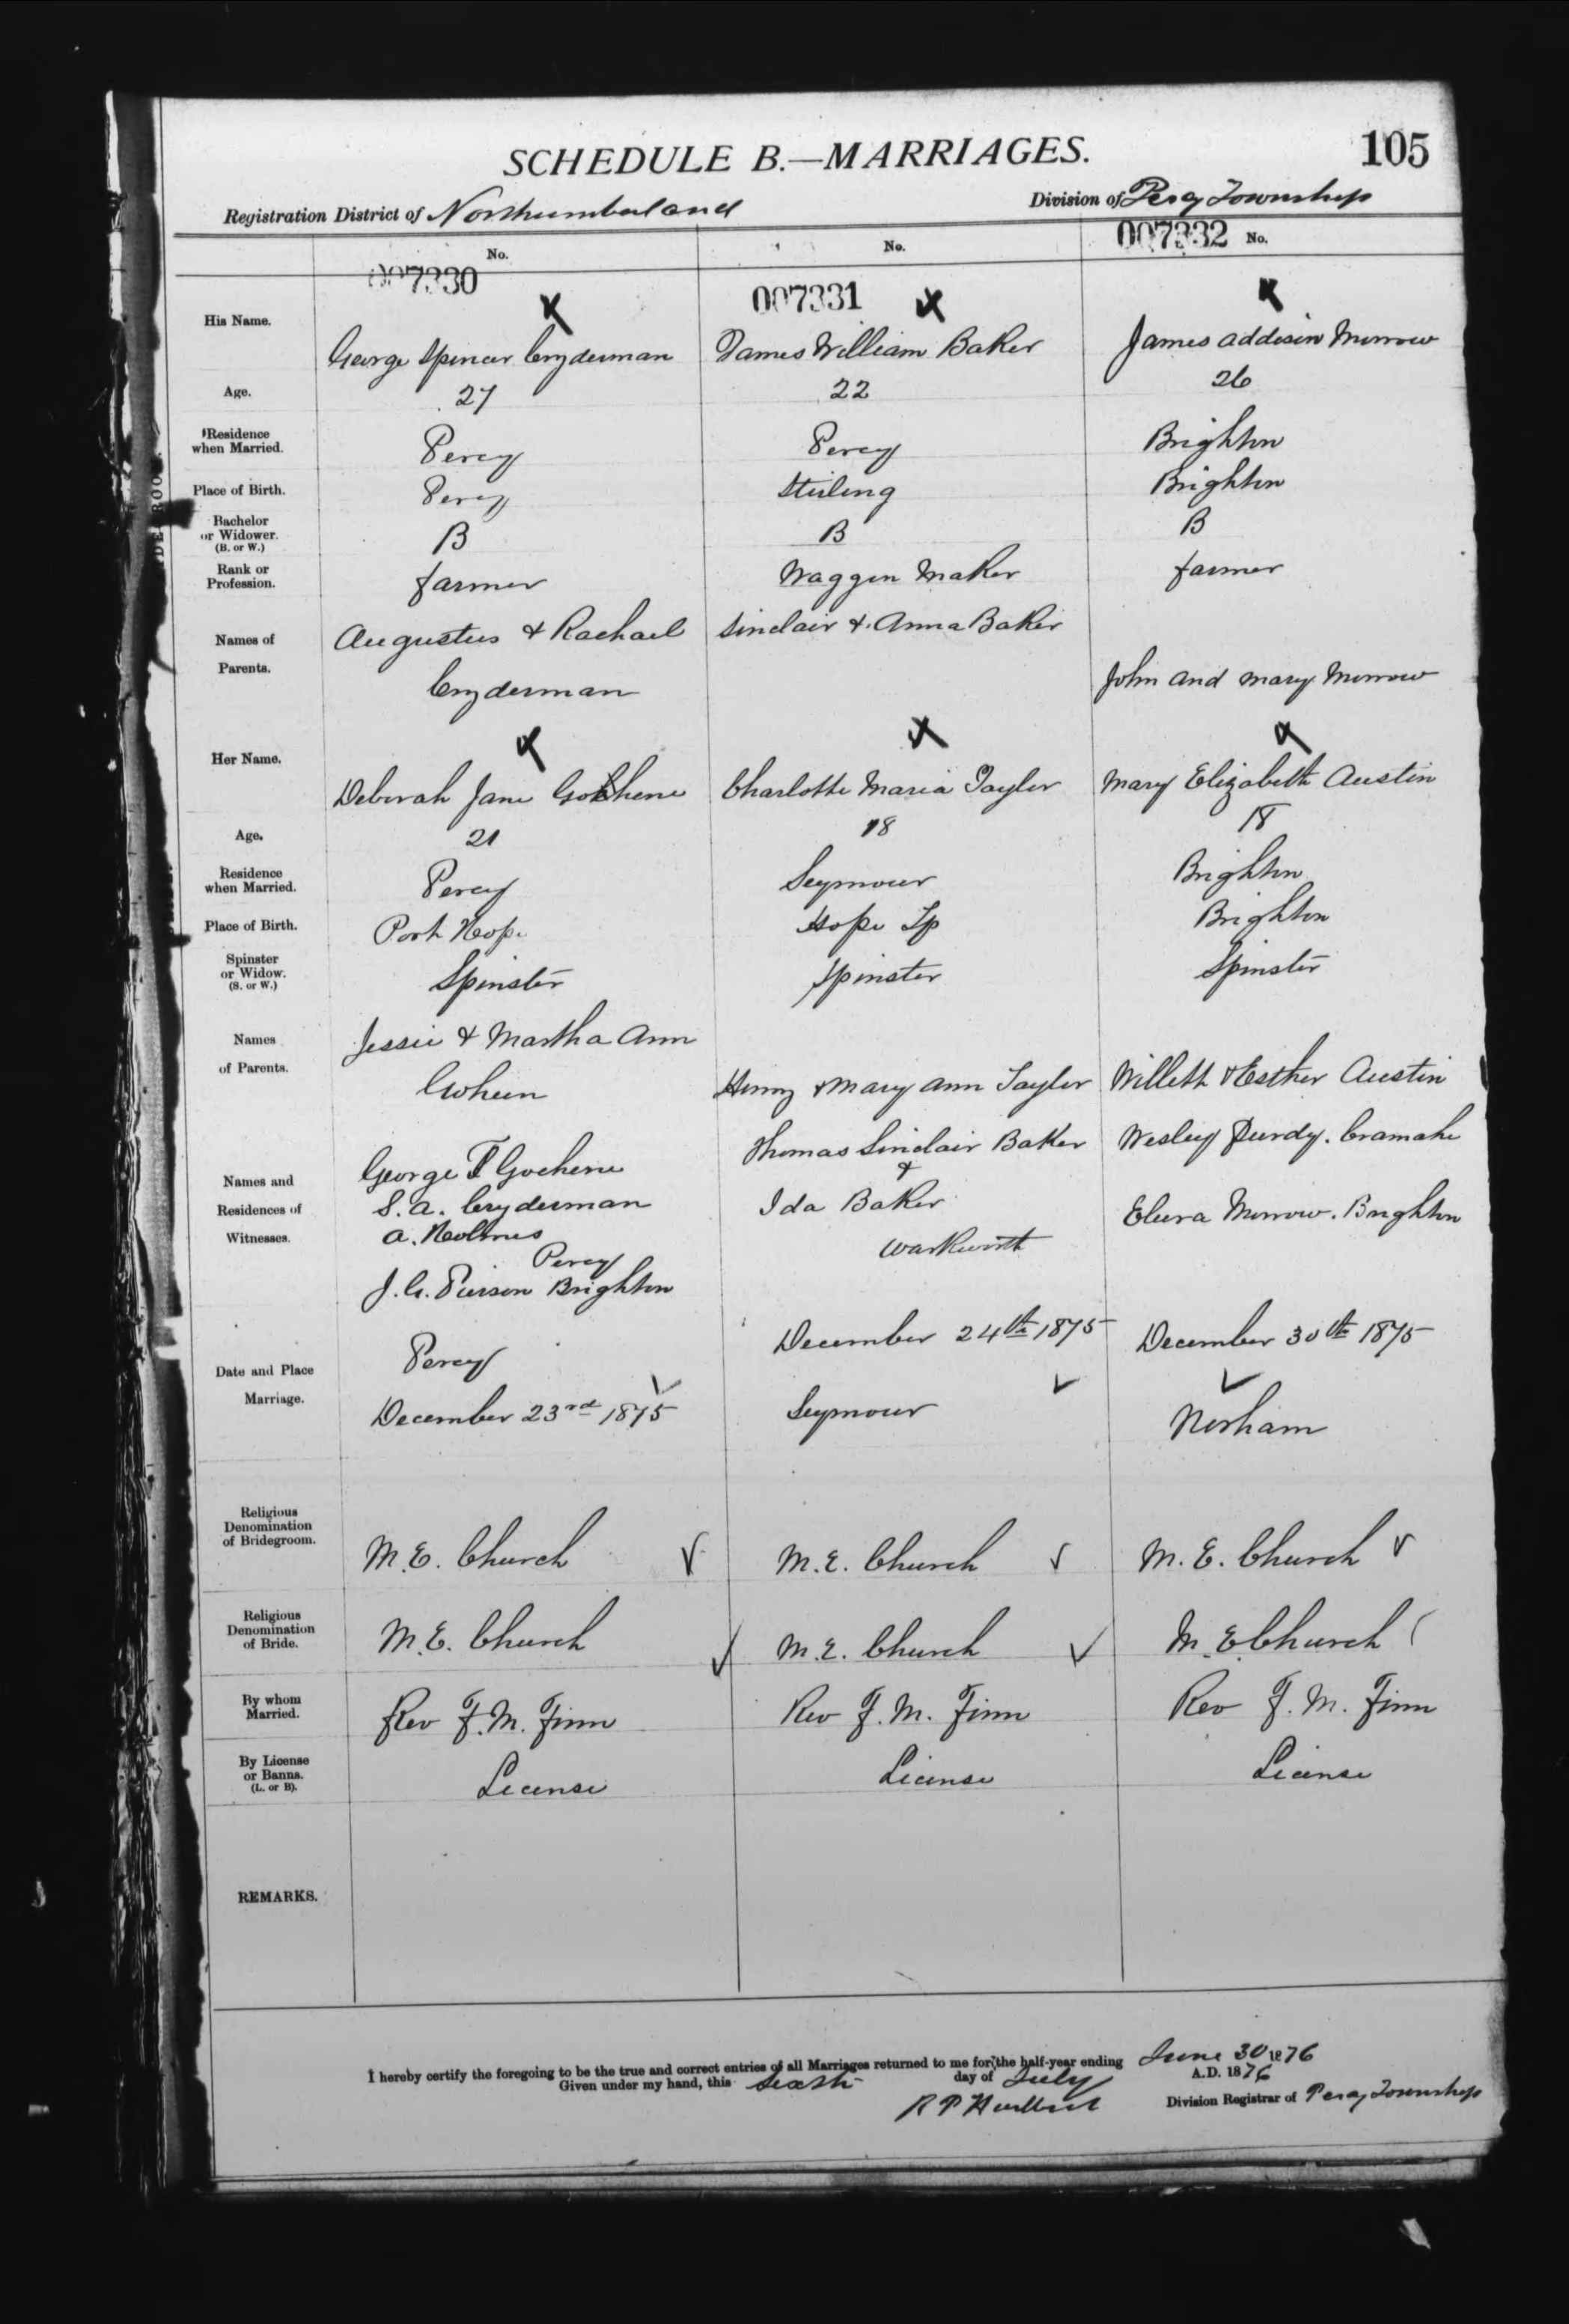 SCHEDULE B.—MARRIAGES.
105
Registration District of Northumberland
Division of Percy Township
No. 007330
No. 007331
007332 No.
His Name.
George Spencer Cryderman
James William Baker
James Addison Morrow
Age.
27
22
26
Residence
when Married.
Percy
Percy
Brighton
Place of Birth.
Percy
Stirling
Brighton
Bachelor
or Widower.
(B. or W.)
B
B
B
Rank or
Profession.
farmer
Waggon Maker
farmer
Names of
Parents.
Augustus & Rachael
Cryderman
Sinclair & Anna Baker
John and Mary Morrow
Her Name.
Deborah Jane
Charlotte Maria Taylor
Mary Elizabeth Austin
Age.
21
18
18
Residence
when Married.
Percy
Seymour
Brighton
Place of Birth.
Port Hope
Hope Tp
Brighton
Spinster
or Widow.
(S. or W.)
Spinster
Spinster
Spinster
Names
of Parents.
Jessie & Martha Ann
Goheen
Henry & Mary Ann Taylor
Willett & Esther Austin
Names and
Residences of
Witnesses.
George Gochene
S. A. Cryderman
A. Holmes
Percy
J. G. Pierson Brighton
Thomas Sinclair Baker
&
Ida Baker
Warkworth
Wesley Purdy. Cramahe
Morrow. Brighton
Date and Place
Marriage.
Percy
December 23rd 1875
December 24th 1875
Seymour
December 30th 1875
Norham
Religious
Denomination
of Bridegroom.
M. E. Church
M. E. Church
M. E. Church
Religious
Denomination
of Bride.
M. E. Church
M. E. Church
M. E Church
By whom
Married.
Rev F. M. Finn
Rev F. M. Finn
Rev F. M. Finn
By License
or Banns.
(L. or B).
License
License
License
REMARKS.
I hereby certify the foregoing to be the true and correct entries of all Marriages returned to me for the half-year ending June 30 1876
Given under my hand, this Sixth day of July A.D. 1876
R P Hurlbut Division Registrar of Percy Township